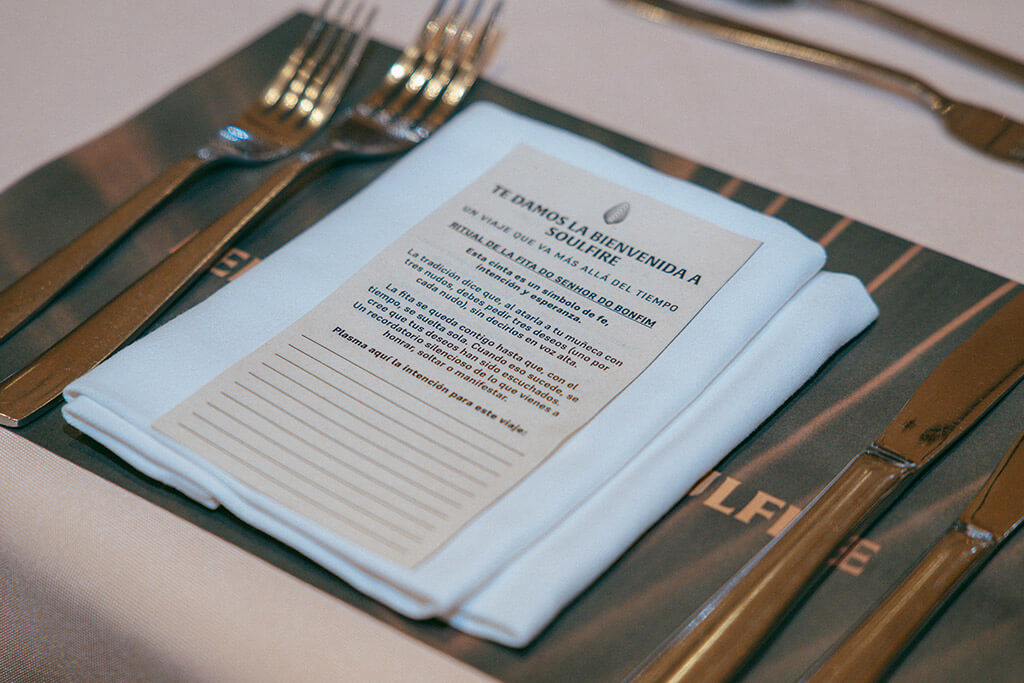 TE DAMOS LA BIENVENIDA A
SOULFIRE
UN VIAJE QUE VA MÁS ALLÁ DEL TIEMPO
RITUAL DE LA FITA DO SENHOR DO BONFIM
Esta cinta es un símbolo de fe,
intención y esperanza.
La tradición dice que, al atarla a tu muñeca con
tres nudos, debes pedir tres deseos (uno por
cada nudo), sin decirlos en voz alta.
La fita se queda contigo hasta que, con el
tiempo, se suelta sola. Cuando eso sucede, se
cree que tus deseos han sido escuchados.
Un recordatorio silencioso de lo que vienes a
honrar, soltar o manifestar.
Plasma aquí la intención para este viaje: